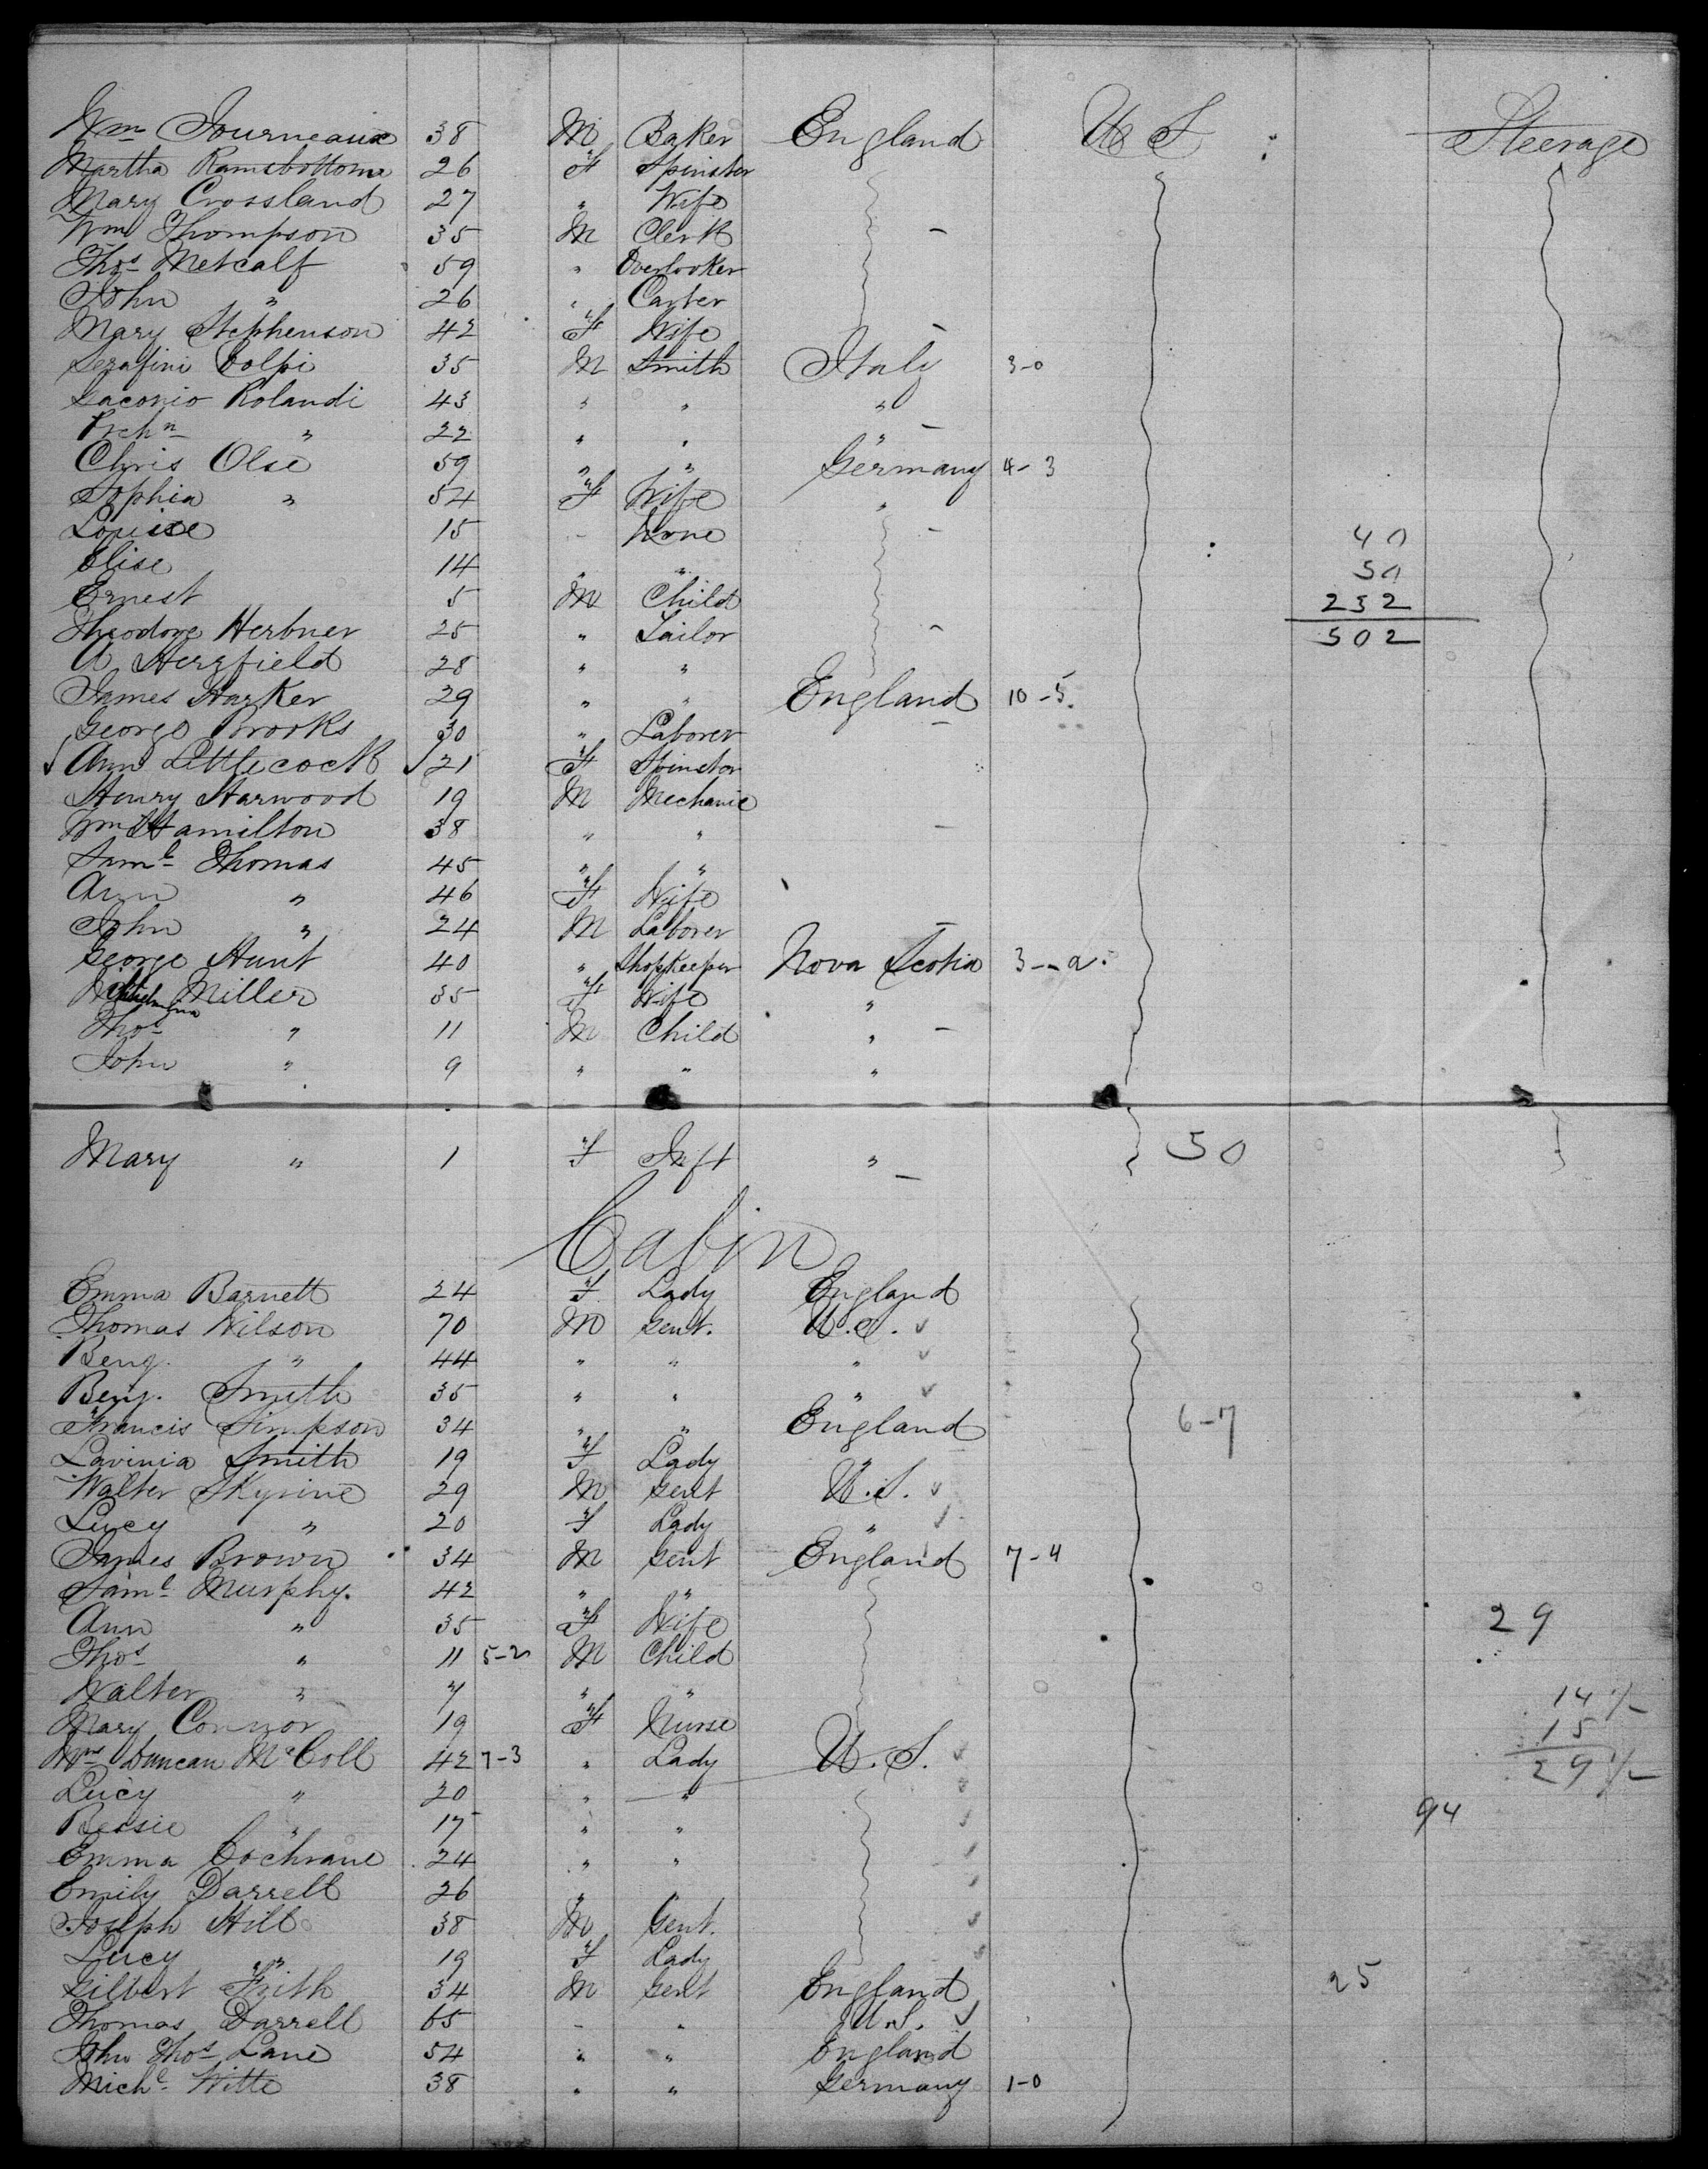 Wm Journeaux 38 M Baker England U S : Steerage
Martha Ramsbottom 26 F Spinster
Mary Crossland 27 " Wife
Wm Thompson 35 M Clerk –
Thos Metcalf 59 " Overlooker
John " 26 " Carter
Mary Stephenson 42 F Wife –
Serafini Colpi 35 M Smith Italy 3-0
Giaconio Rolandi 43 " " "
" 22 " " –
Chris Olse 59 " " Germany 4-3
Sophia " 54 F Wife "
Louise 15 – None – 40
Elise 14 " " : 50
Ernest 5 M Child 232
Theodore Herbner 25 " Tailor – 502
A Herzfield 28 " "
James Harker 29 " " England 10-5
George Brooks 30 " Laborer –
√ Ann Littlecock √ 21 F Spinster
Henry Harwood 19 M Mechanic
Wm Hamilton 38 " " –
Saml Thomas 45 " "
Ann " 46 F Wife
John " 24 M Laborer –
George Hunt 40 " Shopkeeper Nova Scotia 3--a.
Wilhelmina Miller 35 F Wife "
Thos " 11 M Child " –
John " 9 " " "
Mary " 1 F Inft " – 50
Cabin
Emma Barnett 24 F Lady England
Thomas Wilson 70 M Gent. U.S. ✓
Benj. " 44 " " " ✓
Benj. Smith 35 " " " ✓
Francis Simpson 34 " " England 6-7
Lavinia Smith 19 F Lady "
Walter Skyrine 29 M Gent U.S. ✓
Lucy " 20 F Lady " ✓
James Brown 34 M Gent England 7-4
Saml Murphy. 42 " "
Ann " 35 F Wife 29
Thos " 11 5-2 M Child
Walter " 7 " " 14 1/-
Mary Connor 19 F Nurse 15
Mrs Duncan McColl 42 7-3 " Lady U.S. ✓ 29 1/-
Lucy " 20 " " ✓
Bessie " 17 " " ✓ 94
Emma Cochrane 24 " " ✓
Emily Darrell 26 " " ✓
Joseph Hill 38 M Gent. ✓
Lucy " 19 F Lady ✓
Gilbert Frith 34 M Gent England 25
Thomas Darrell 65 – " U.S. ✓
John Thos Lane 54 " " England
Michl Witte 38 " " Germany 1-0